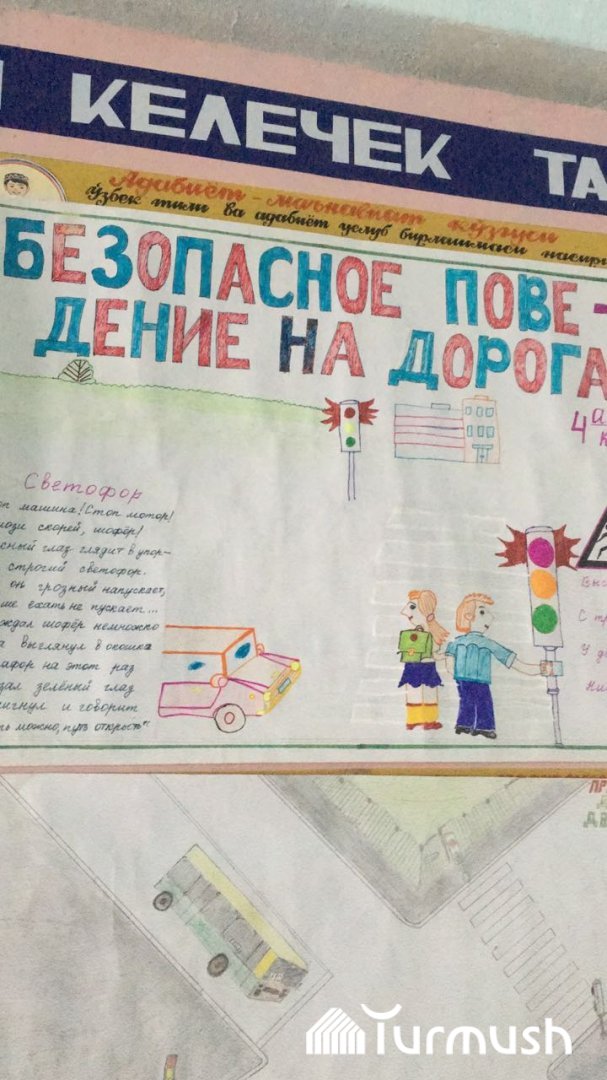 КЕЛЕЧЕК ТА
Адабиёт - маънавият кўзгуси
Ўзбек тили ва адабиёт услуб бирлашмаси нашри
БЕЗОПАСНОЕ ПОВЕ-
ДЕНИЕ НА ДОРОГА
4 а
к
Светофор
оп машина! Стоп мотор!
мози скорей, шофёр!
асный глаз глядит в упор-
строгий светофор.
он грозный напускает,
ше ехать не пускает...
ждал шофёр немножко
а выглянул в окошка
афор на этот раз
зал зелёный глаз
мигнул и говорит
ть можно, путь открыт"
С т
У д
Ни
ПР
Д
ДВ
Turmush